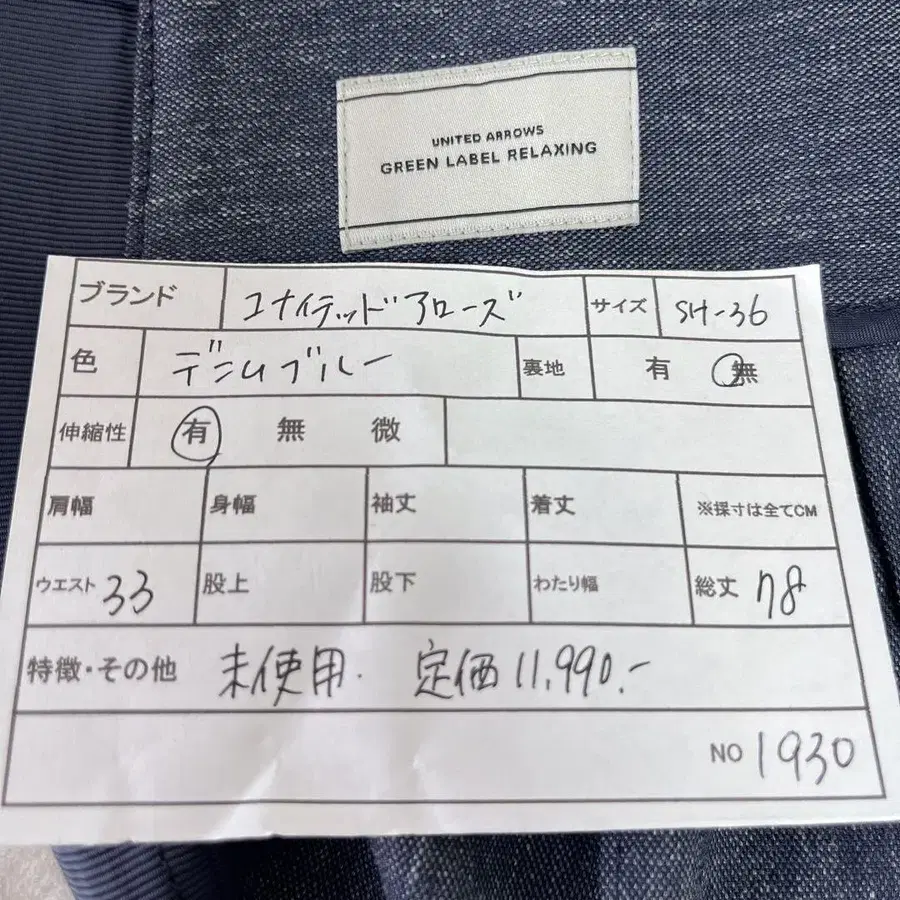 UNITED ARROWS
GREEN LABEL RELAXING
ブランド ユナイテッドアローズ サイズ SH-36
色 デニムブルー 裏地 有 無
伸縮性 有 無 微
肩幅 身幅 袖丈 着丈 ※採寸は全てCM
ウエスト 33 股上 股下 わたり幅 総丈 78
特徴・その他 未使用. 定価 11,990.-
NO 1930